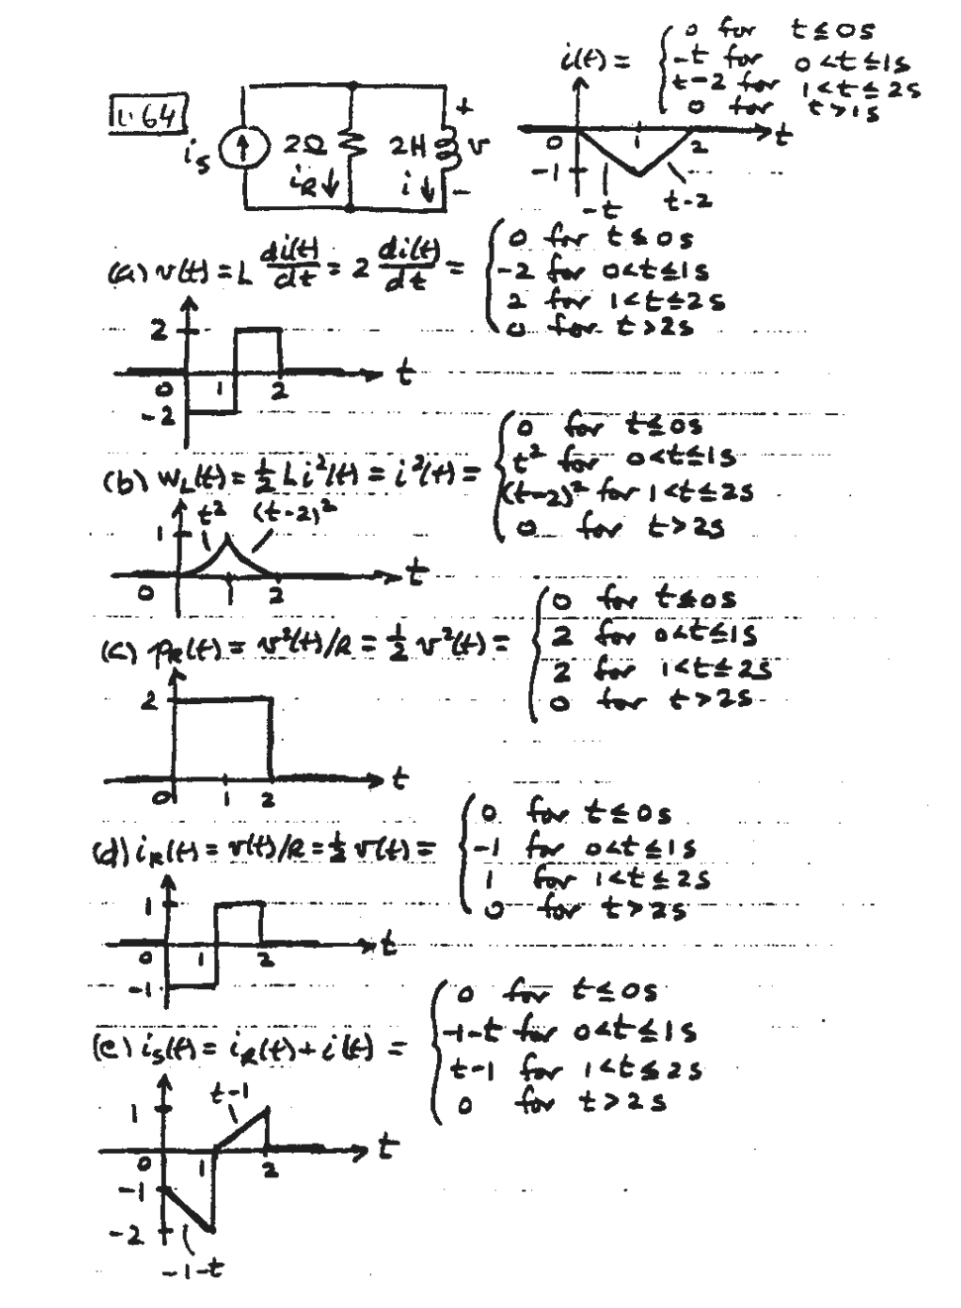 i(t) = { 0 for t ≤ 0s
-t for 0 < t ≤ 1s
t-2 for 1 < t ≤ 2s
0 for t > 1s
1.64
i_S 2Ω i_R 2H i + v -
0 1 2 t
-1
-t t-2
(a) v(t) = L di(t)/dt = 2 di(t)/dt = { 0 for t ≤ 0s
-2 for 0 < t ≤ 1s
2 for 1 < t ≤ 2s
0 for t > 2s
2
0 1 2 t
-2
(b) w_L(t) = ½ L i²(t) = i²(t) = { 0 for t ≤ 0s
t² for 0 < t ≤ 1s
(t-2)² for 1 < t ≤ 2s
0 for t > 2s
1 t² (t-2)²
0 1 2 t
(c) p_R(t) = v²(t)/R = ½ v²(t) = { 0 for t ≤ 0s
2 for 0 < t ≤ 1s
2 for 1 < t ≤ 2s
0 for t > 2s
2
0 1 2 t
(d) i_R(t) = v(t)/R = ½ v(t) = { 0 for t ≤ 0s
-1 for 0 < t ≤ 1s
1 for 1 < t ≤ 2s
0 for t > 2s
1
0 1 2 t
-1
(e) i_S(t) = i_R(t) + i(t) = { 0 for t ≤ 0s
-1-t for 0 < t ≤ 1s
t-1 for 1 < t ≤ 2s
0 for t > 2s
1 t-1
0 1 2 t
-1
-2
-1-t